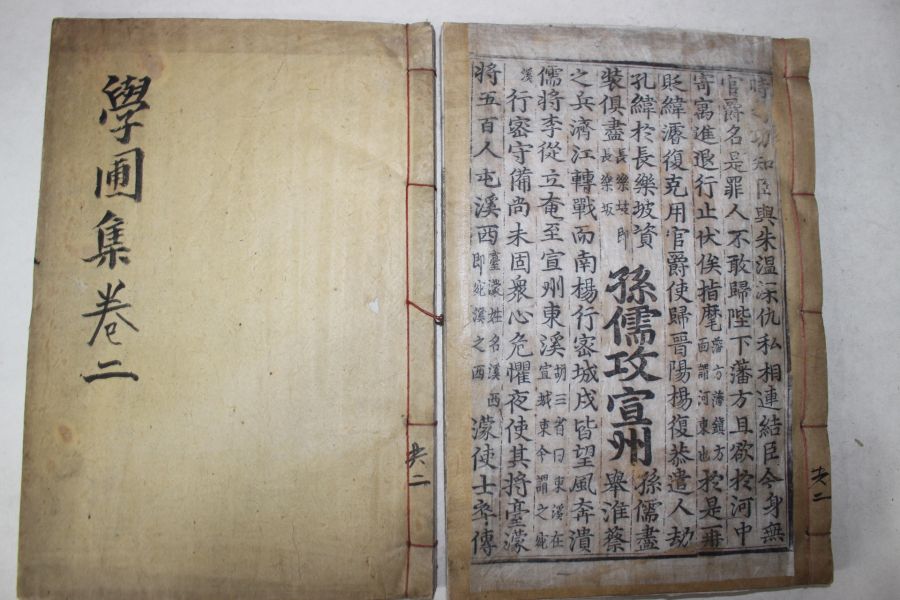 學圃集卷二
共二
知臣與朱溫深仇私相連結臣今身無
官爵名是罪人不敢歸陛下藩方且欲於河中
寄寓進退行止伏俟指麾
於是再
貶緯濬復克用官爵使歸晉陽楊復恭遣人劫
孔緯於長樂坡資
裝俱盡長樂坡即
長樂坂
孫儒攻宣州
孫儒盡
舉淮蔡
之兵濟江轉戰而南楊行密城戍皆望風奔潰
儒將李從立奄至宣州東溪胡三省曰東溪在
宣城東今謂之宛
溪
行密守備尚未固衆心危懼夜使其將臺濛
將五百人屯溪西臺濛姓名溪西
即宛溪之西
濛使士卒傳
共二